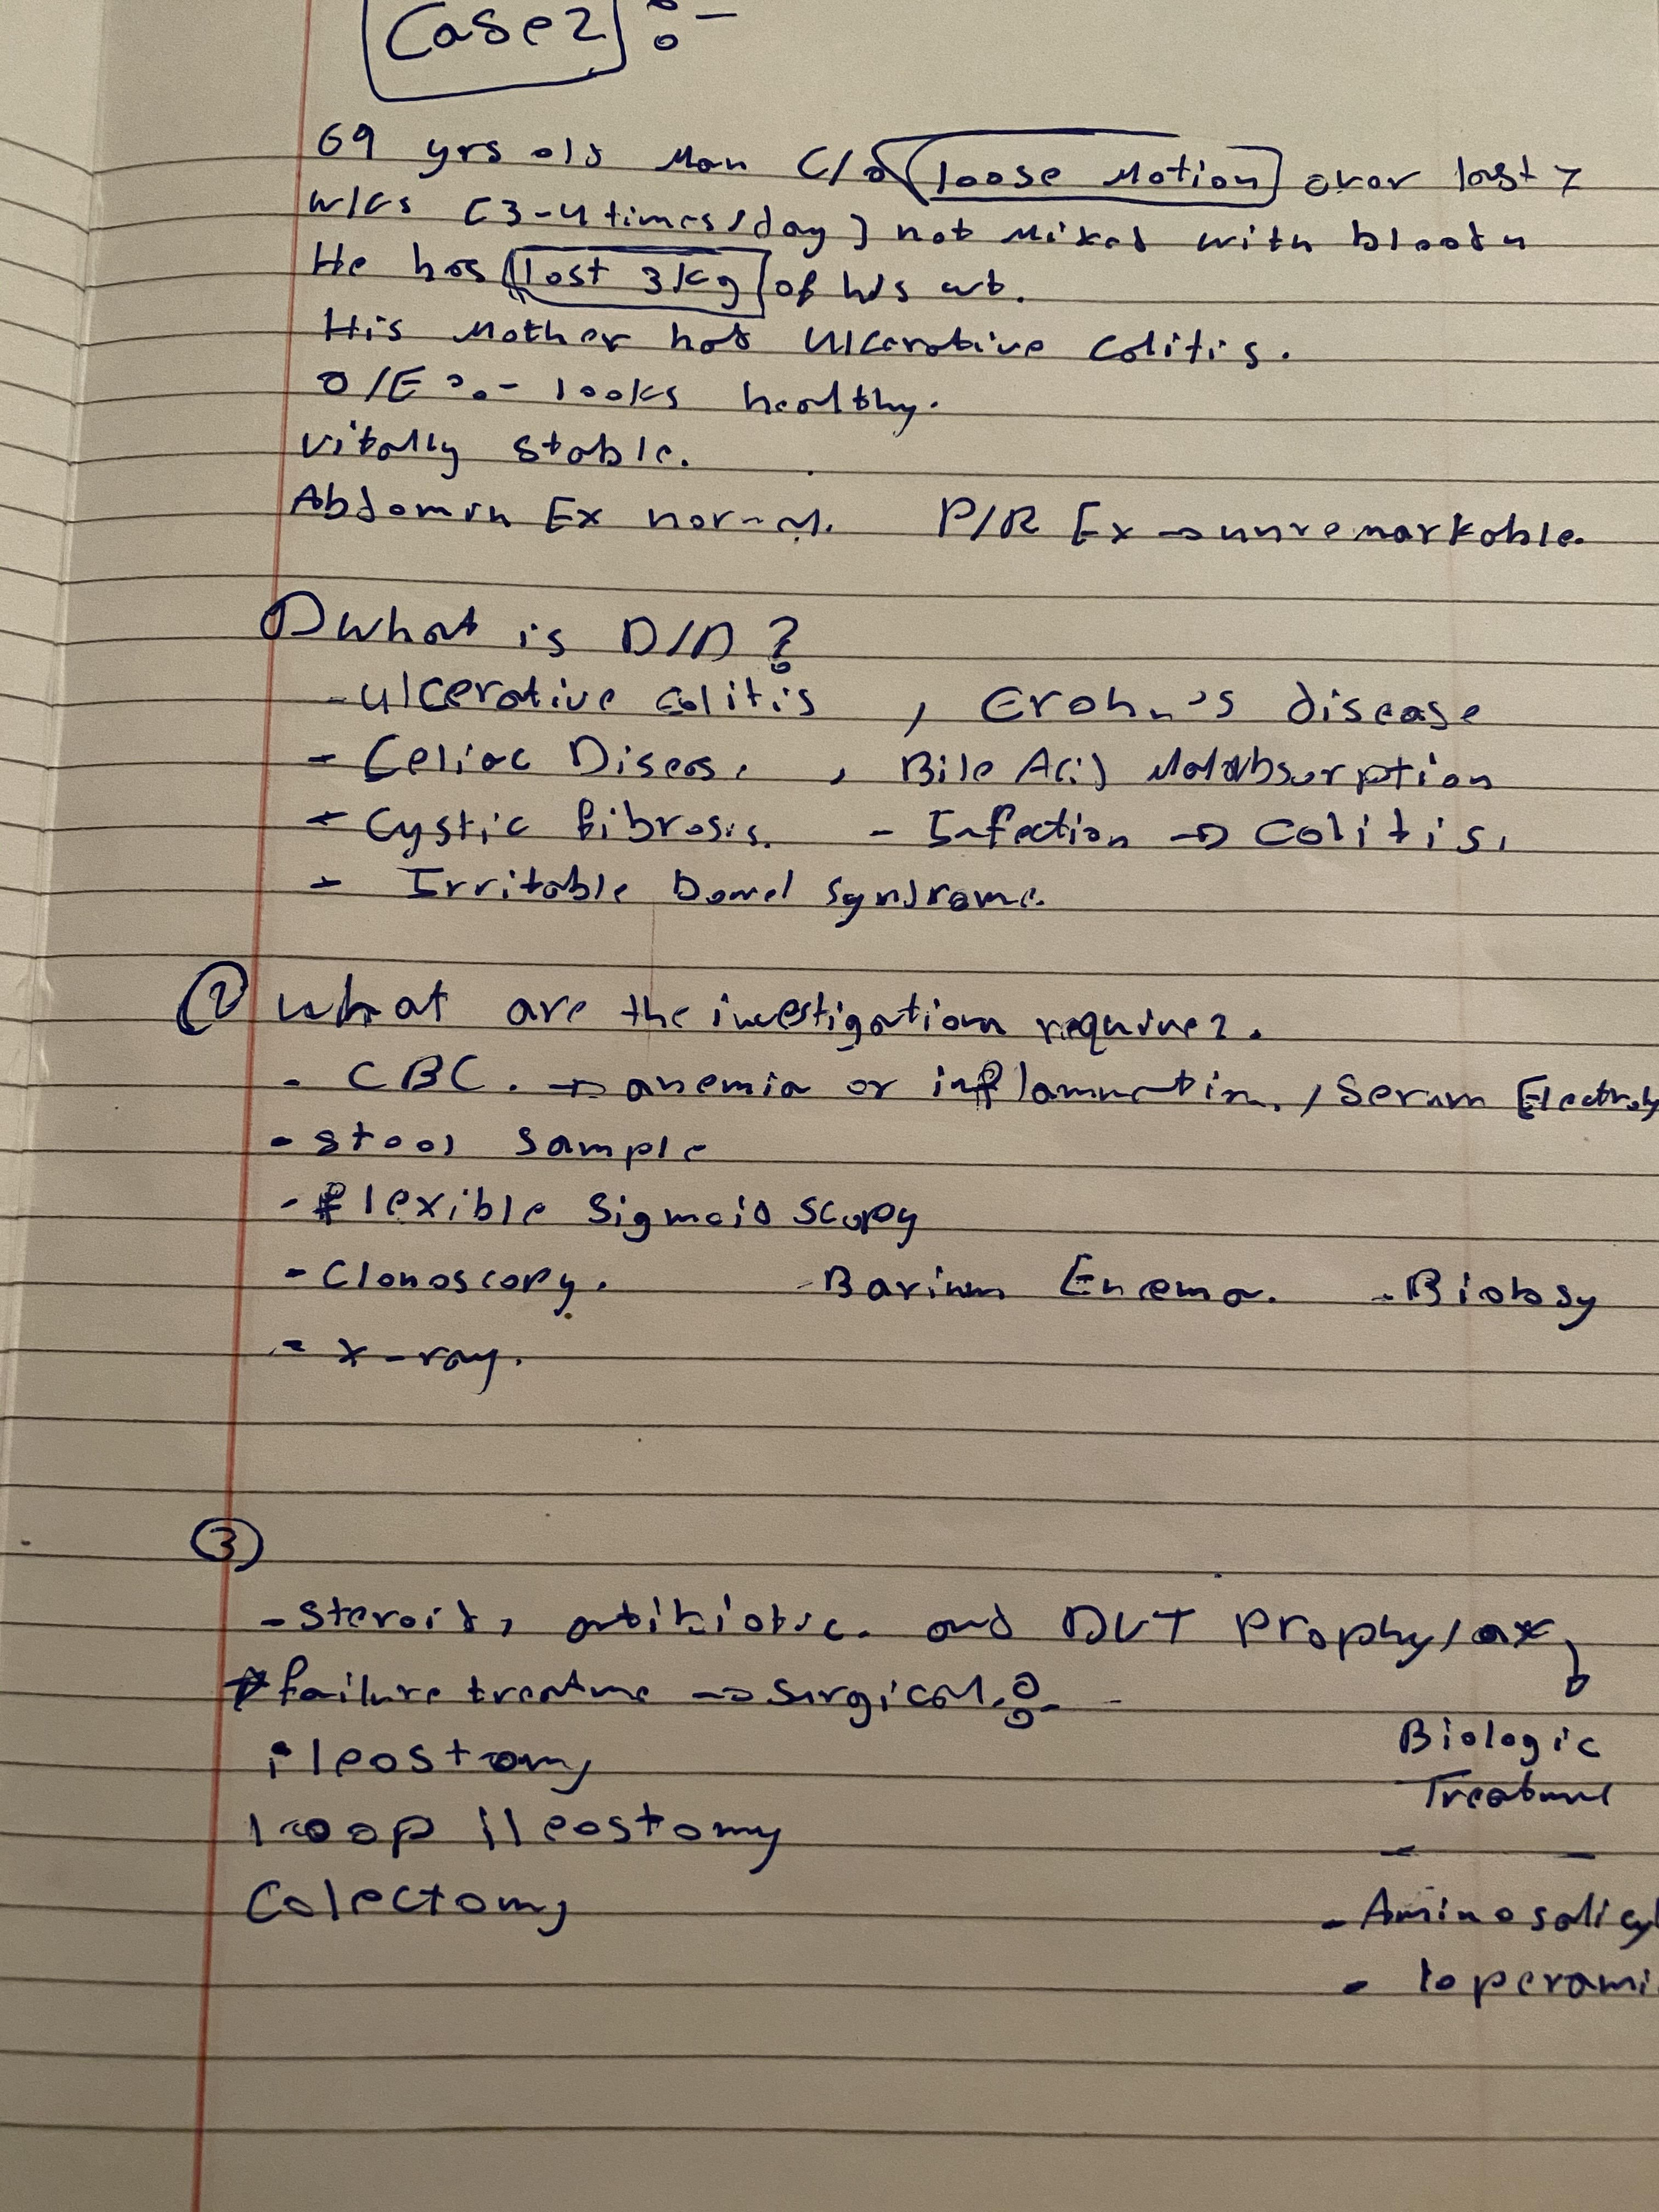 Case 2 :-
69 yrs old Man C/o loose Motion over last 7
w/cs (3-4 times/day) not Mixed with blood
He has lost 3 kg of his wt.
His Mother has Ulcerative Colitis.
O/E :- looks healthy.
vitally stable.
Abdomen Ex normal. P/R Ex → unremarkable.
① what is D/D ?
- ulcerative colitis , Crohn's disease
- Celiac Diseas. , Bile Acid Malabsorption
- Cystic fibrosis. - Infection → colitis.
- Irritable bowel syndrome.
② what are the investigation require?.
- CBC. → anemia or inflammation. / Serum Electroly
- stool sample
- flexible sigmoidoscopy
- Clonoscopy. - Barium Enema. - Biobsy
- x-ray.
③
- steroid, antibiotic. and DVT prophylax
failure treatme → surgical :-
ileostomy
loop ileostomy
Colectomy
Biologic
Treatme
- Aminosalicyl
- loperami